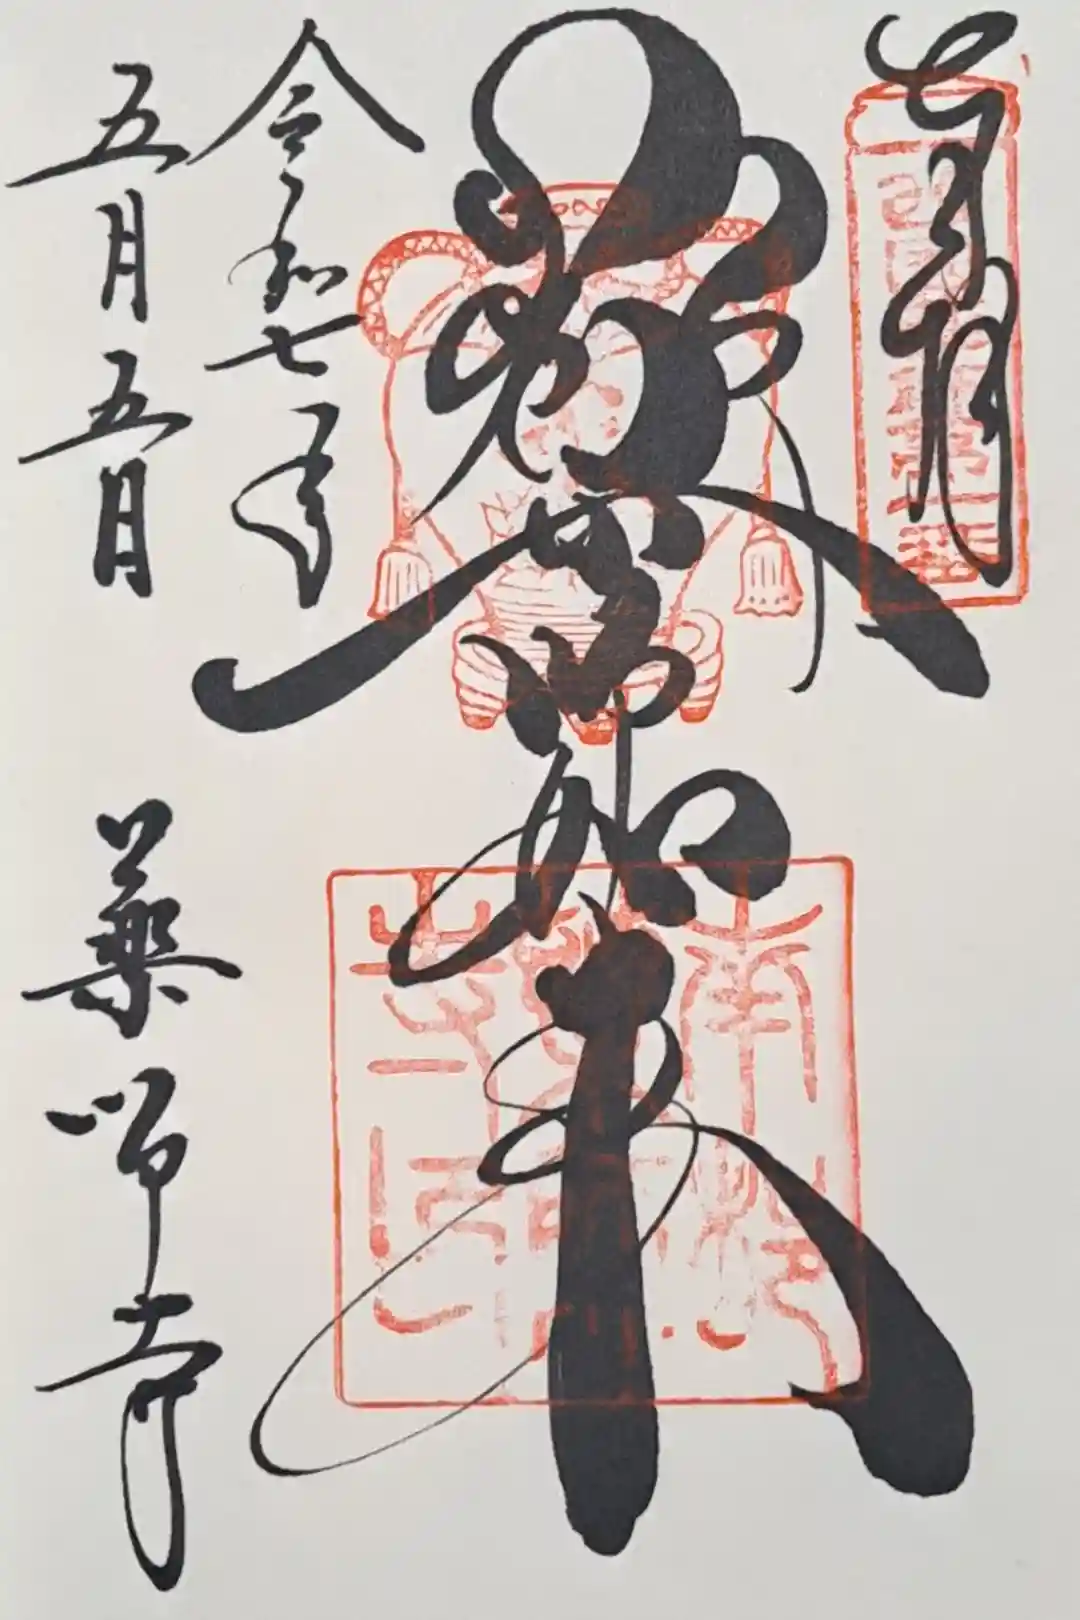 奉拝
薬師如来
令和七年
五月五日
薬師寺